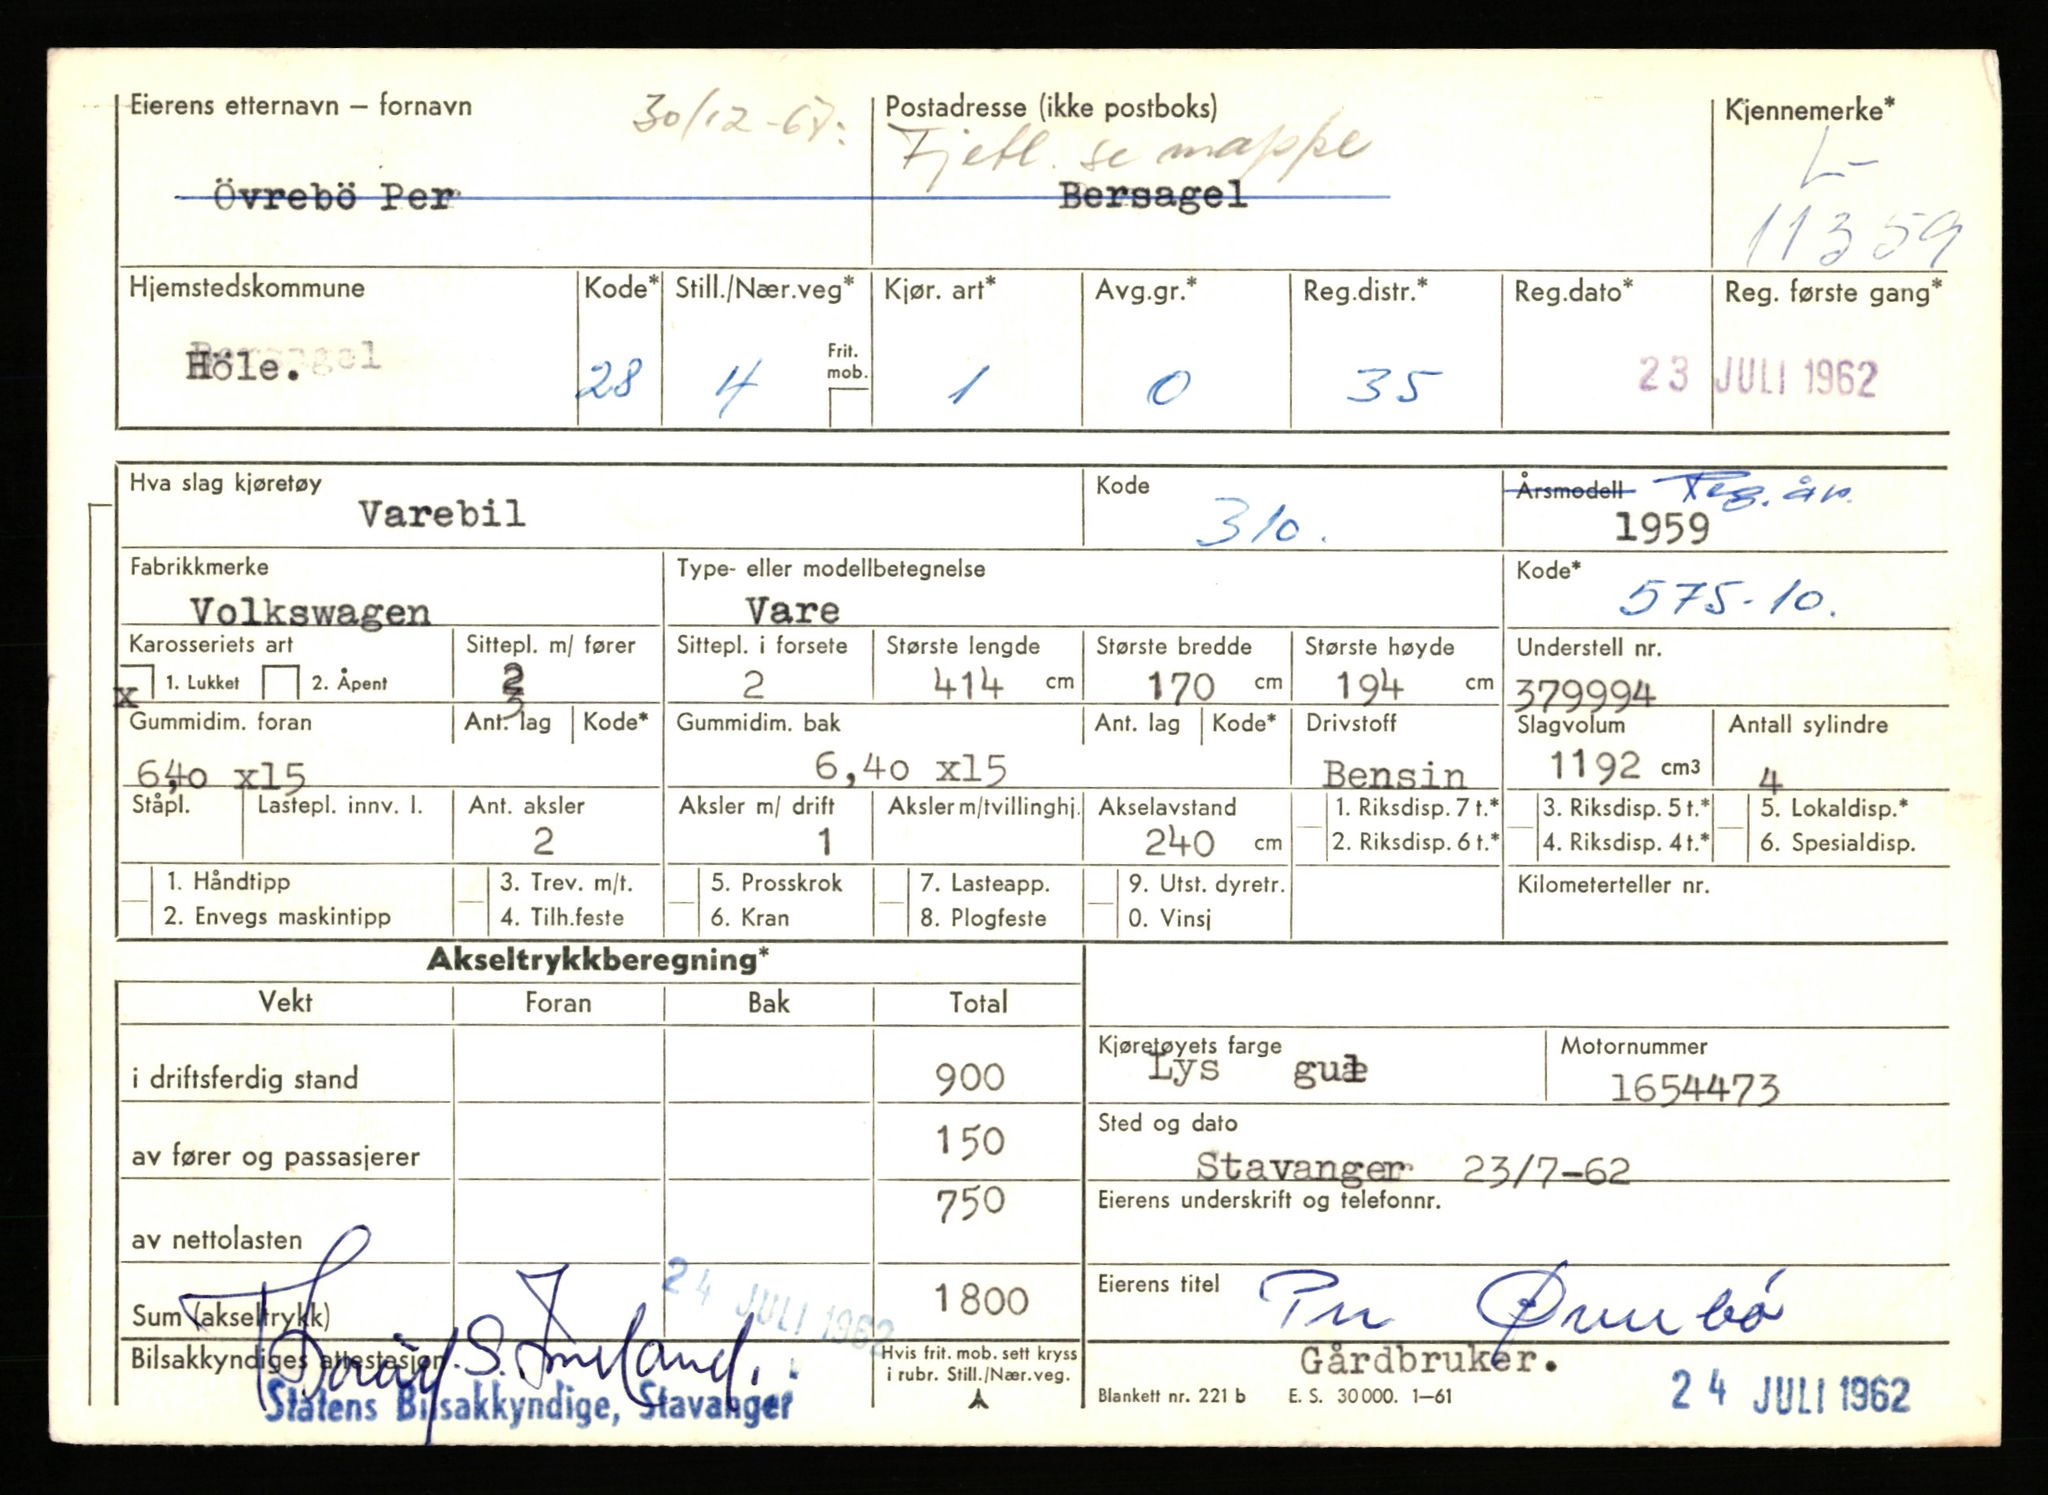 Eierens etternavn – fornavn 30/12-67. Postadresse (ikke postboks) Kjennemerke*
Fjetl. se mappe L-
Övrebö Per Bersagel 11359
Hjemstedskommune Kode* Still./Nær.veg* Kjør. art* Avg.gr.* Reg.distr.* Reg.dato* Reg. første gang*
Bersagel
Höle. 28 4 Frit. mob. 1 0 35 23 JULI 1962
Hva slag kjøretøy Kode Årsmodell Reg. år.
Varebil 310. 1959
Fabrikkmerke Type- eller modellbetegnelse Kode*
Volkswagen Vare 575-10.
Karosseriets art Sittepl. m/ fører Sittepl. i forsete Største lengde Største bredde Største høyde Understell nr.
x 1. Lukket 2. Åpent 2 2 414 cm 170 cm 194 cm 379994
Gummidim. foran Ant. lag Kode* Gummidim. bak Ant. lag Kode* Drivstoff Slagvolum Antall sylindre
6,40 x15 6,40 x15 Bensin 1192 cm3 4
Ståpl. Lastepl. innv. l. Ant. aksler Aksler m/ drift Aksler m/tvillinghj. Akselavstand 1. Riksdisp. 7 t.* 3. Riksdisp. 5 t.* 5. Lokaldisp.*
2 1 240 cm 2. Riksdisp. 6 t.* 4. Riksdisp. 4 t.* 6. Spesialdisp.
1. Håndtipp 3. Trev. m/t. 5. Prosskrok 7. Lasteapp. 9. Utst. dyretr. Kilometerteller nr.
2. Envegs maskintipp 4. Tilh.feste 6. Kran 8. Plogfeste 0. Vinsj
Akseltrykkberegning*
Vekt Foran Bak Total
Kjøretøyets farge Motornummer
i driftsferdig stand 900 Lys gul 1654473
Sted og dato
av fører og passasjerer 150 Stavanger 23/7-62
Eierens underskrift og telefonnr.
av nettolasten 750
Eierens titel Per Øvrebö
Sum (akseltrykk) 24 JULI 1962 1800
Bilsakkyndiges attestasjon. Hvis frit. mob. sett kryss i rubr. Still./Nær.veg. Gårdbruker.
Statens Bilsakkyndige, Stavanger Blankett nr. 221 b E. S. 30000. 1–61 24 JULI 1962